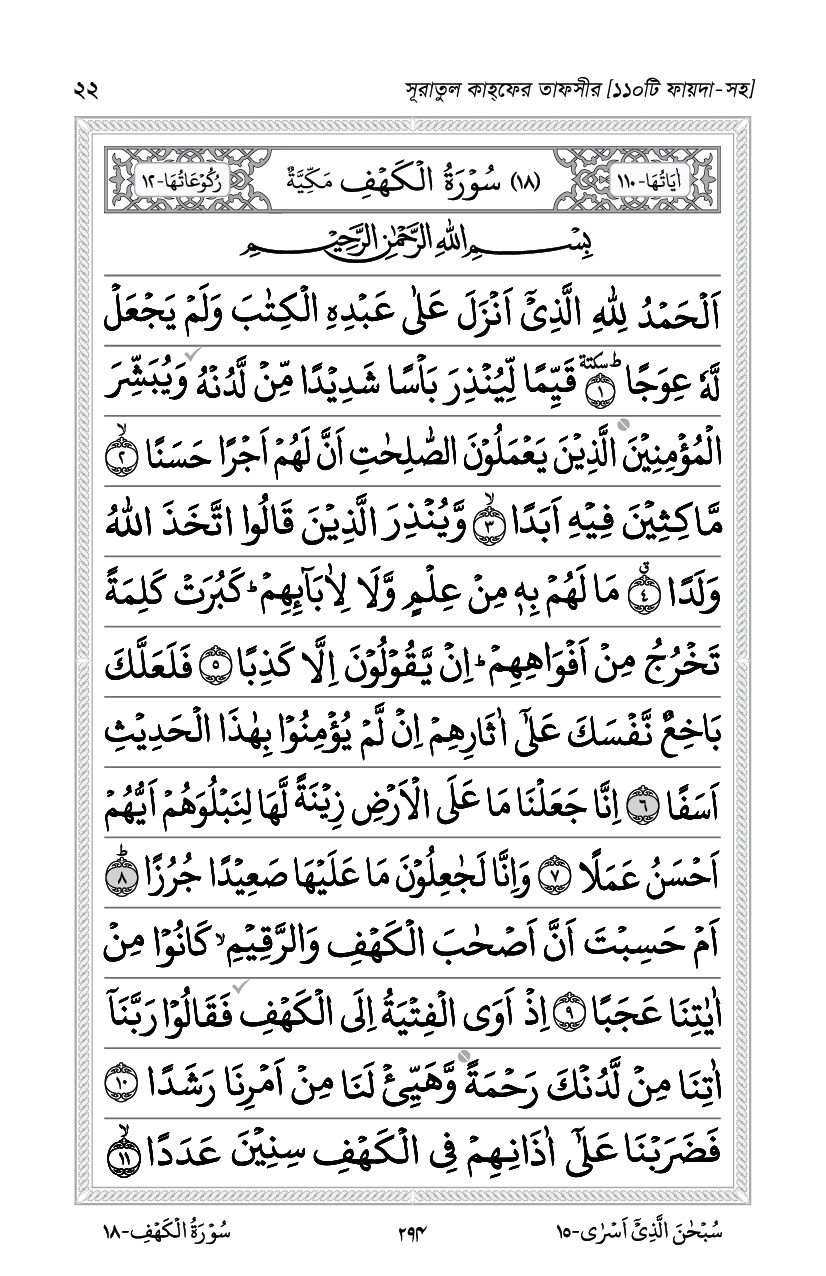 ২২ সূরাতুল কাহ্ফের তাফসীর [১১০টি ফায়দা-সহ]
اٰيَاتُهَا-۱۱۰ (۱۸) سُوْرَةُ الْكَهْفِ مَكِّيَّةٌ رُكُوْعَاتُهَا-۱۲
بِسْمِ اللهِ الرَّحْمٰنِ الرَّحِيْمِ
اَلْحَمْدُ لِلّٰهِ الَّذِيْۤ اَنْزَلَ عَلٰى عَبْدِهِ الْكِتٰبَ وَلَمْ يَجْعَلْ
لَّهٗ عِوَجًا ؕسكتة ۱ قَيِّمًا لِّيُنْذِرَ بَاْسًا شَدِيْدًا مِّنْ لَّدُنْهُ وَيُبَشِّرَ
الْمُؤْمِنِيْنَ الَّذِيْنَ يَعْمَلُوْنَ الصّٰلِحٰتِ اَنَّ لَهُمْ اَجْرًا حَسَنًا ۙ۲
مَّاكِثِيْنَ فِيْهِ اَبَدًا ۙ۳ وَّيُنْذِرَ الَّذِيْنَ قَالُوا اتَّخَذَ اللهُ
وَلَدًا ۗ۴ مَا لَهُمْ بِهٖ مِنْ عِلْمٍ وَّلَا لِاٰبَآئِهِمْ ؕ كَبُرَتْ كَلِمَةً
تَخْرُجُ مِنْ اَفْوَاهِهِمْ ؕ اِنْ يَّقُوْلُوْنَ اِلَّا كَذِبًا ۵ فَلَعَلَّكَ
بَاخِعٌ نَّفْسَكَ عَلٰۤى اٰثَارِهِمْ اِنْ لَّمْ يُؤْمِنُوْا بِهٰذَا الْحَدِيْثِ
اَسَفًا ۶ اِنَّا جَعَلْنَا مَا عَلَى الْاَرْضِ زِيْنَةً لَّهَا لِنَبْلُوَهُمْ اَيُّهُمْ
اَحْسَنُ عَمَلًا ۷ وَاِنَّا لَجٰعِلُوْنَ مَا عَلَيْهَا صَعِيْدًا جُرُزًا ؕ۸
اَمْ حَسِبْتَ اَنَّ اَصْحٰبَ الْكَهْفِ وَالرَّقِيْمِ ۙ كَانُوْا مِنْ
اٰيٰتِنَا عَجَبًا ۹ اِذْ اَوَى الْفِتْيَةُ اِلَى الْكَهْفِ فَقَالُوْا رَبَّنَاۤ
اٰتِنَا مِنْ لَّدُنْكَ رَحْمَةً وَّهَيِّئْ لَنَا مِنْ اَمْرِنَا رَشَدًا ۱۰
فَضَرَبْنَا عَلٰۤى اٰذَانِهِمْ فِى الْكَهْفِ سِنِيْنَ عَدَدًا ۙ۱۱
سُبْحٰنَ الَّذِيْۤ اَسْرٰى-۱۵ ۲۹۴ سُوْرَةُ الْكَهْفِ-۱۸